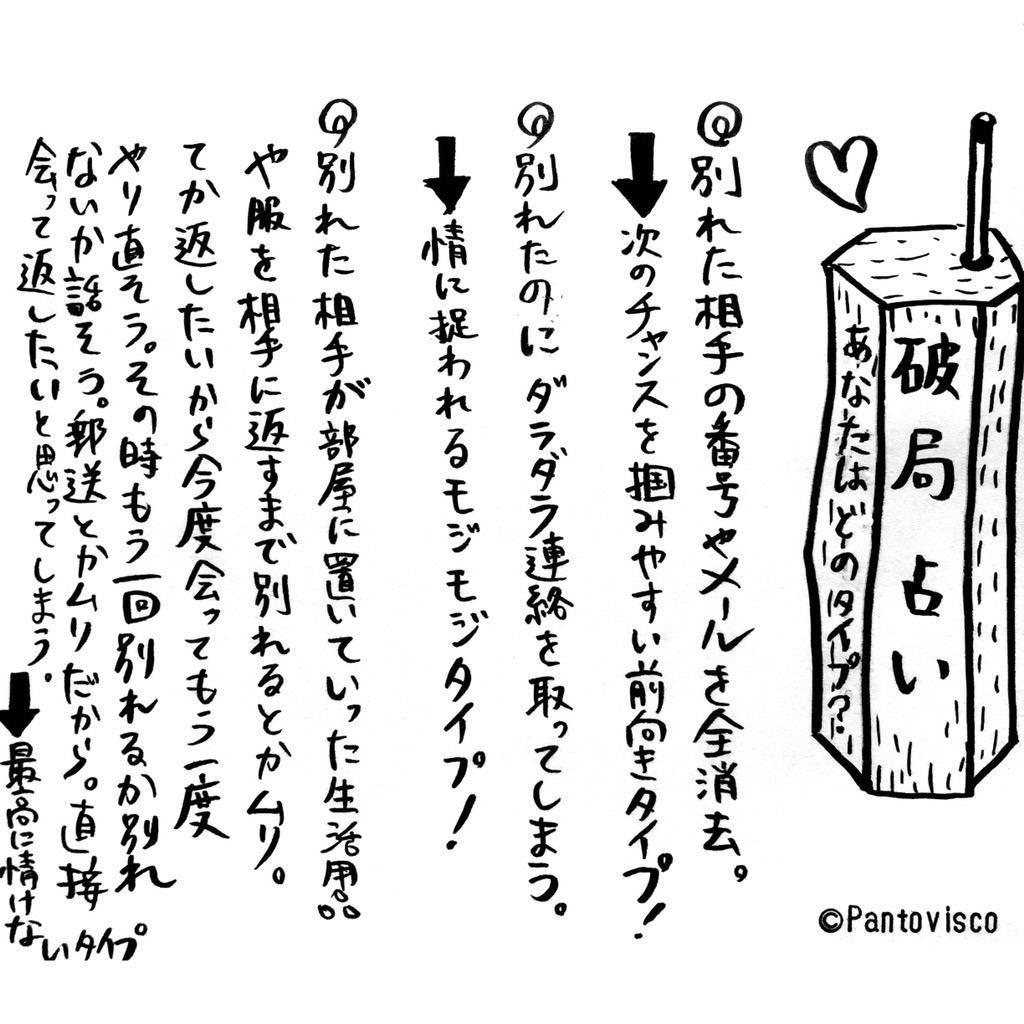 破局占い
あなたはどのタイプ?
◎別れた相手の番号やメールを全消去。
↓次のチャンスを掴みやすい前向きタイプ!
◎別れたのにダラダラ連絡を取ってしまう。
↓情に捉われるモジモジタイプ!
◎別れた相手が部屋に置いていった生活用品
や服を相手に返すまで別れるとかムリ。
てか返したいから今度会ってもう一度
やり直そう。その時もう一回別れるか別れ
ないか話そう。郵送とかムリだから。直接
会って返したいと思ってしまう。
↓最高に情けないタイプ
©Pantovisco